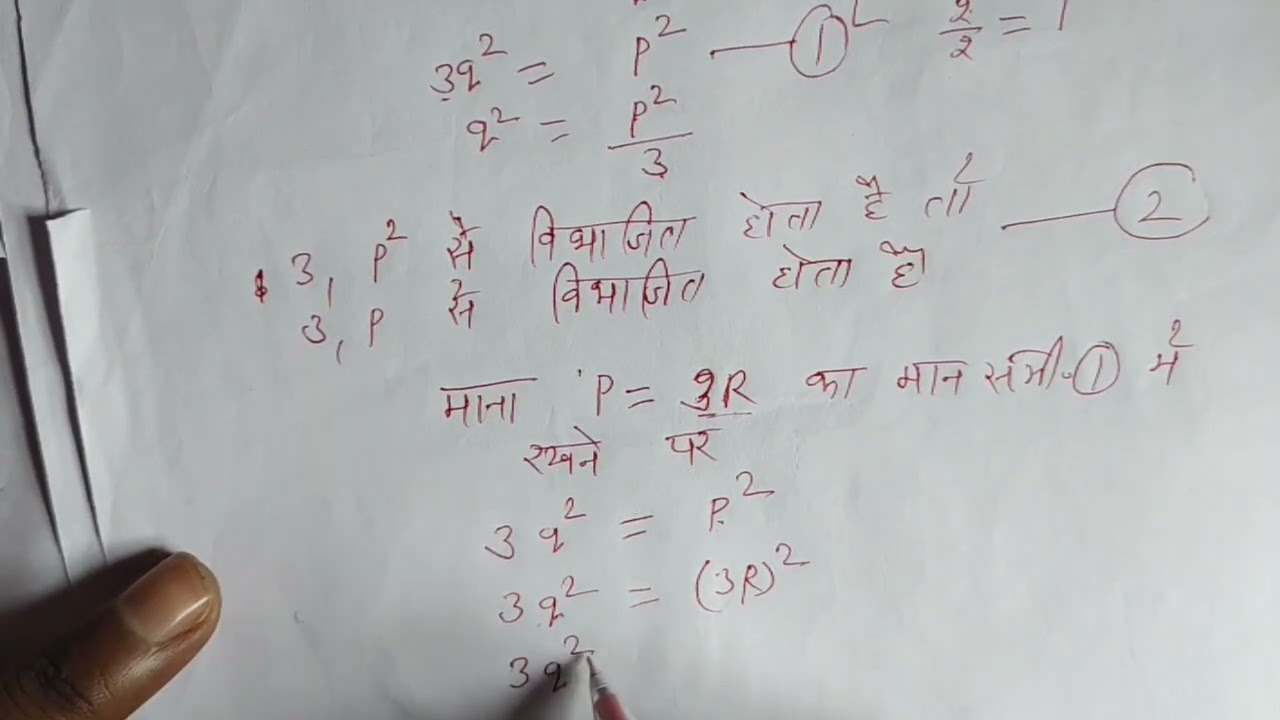 3q² = p² — ① 2/2 = 1
q² = p²/3
3, p² से विभाजित होता है तो — ②
3, p से विभाजित होता है
माना P = 3R का मान समी. ① में
रखने पर
3q² = P²
3q² = (3R)²
3q²